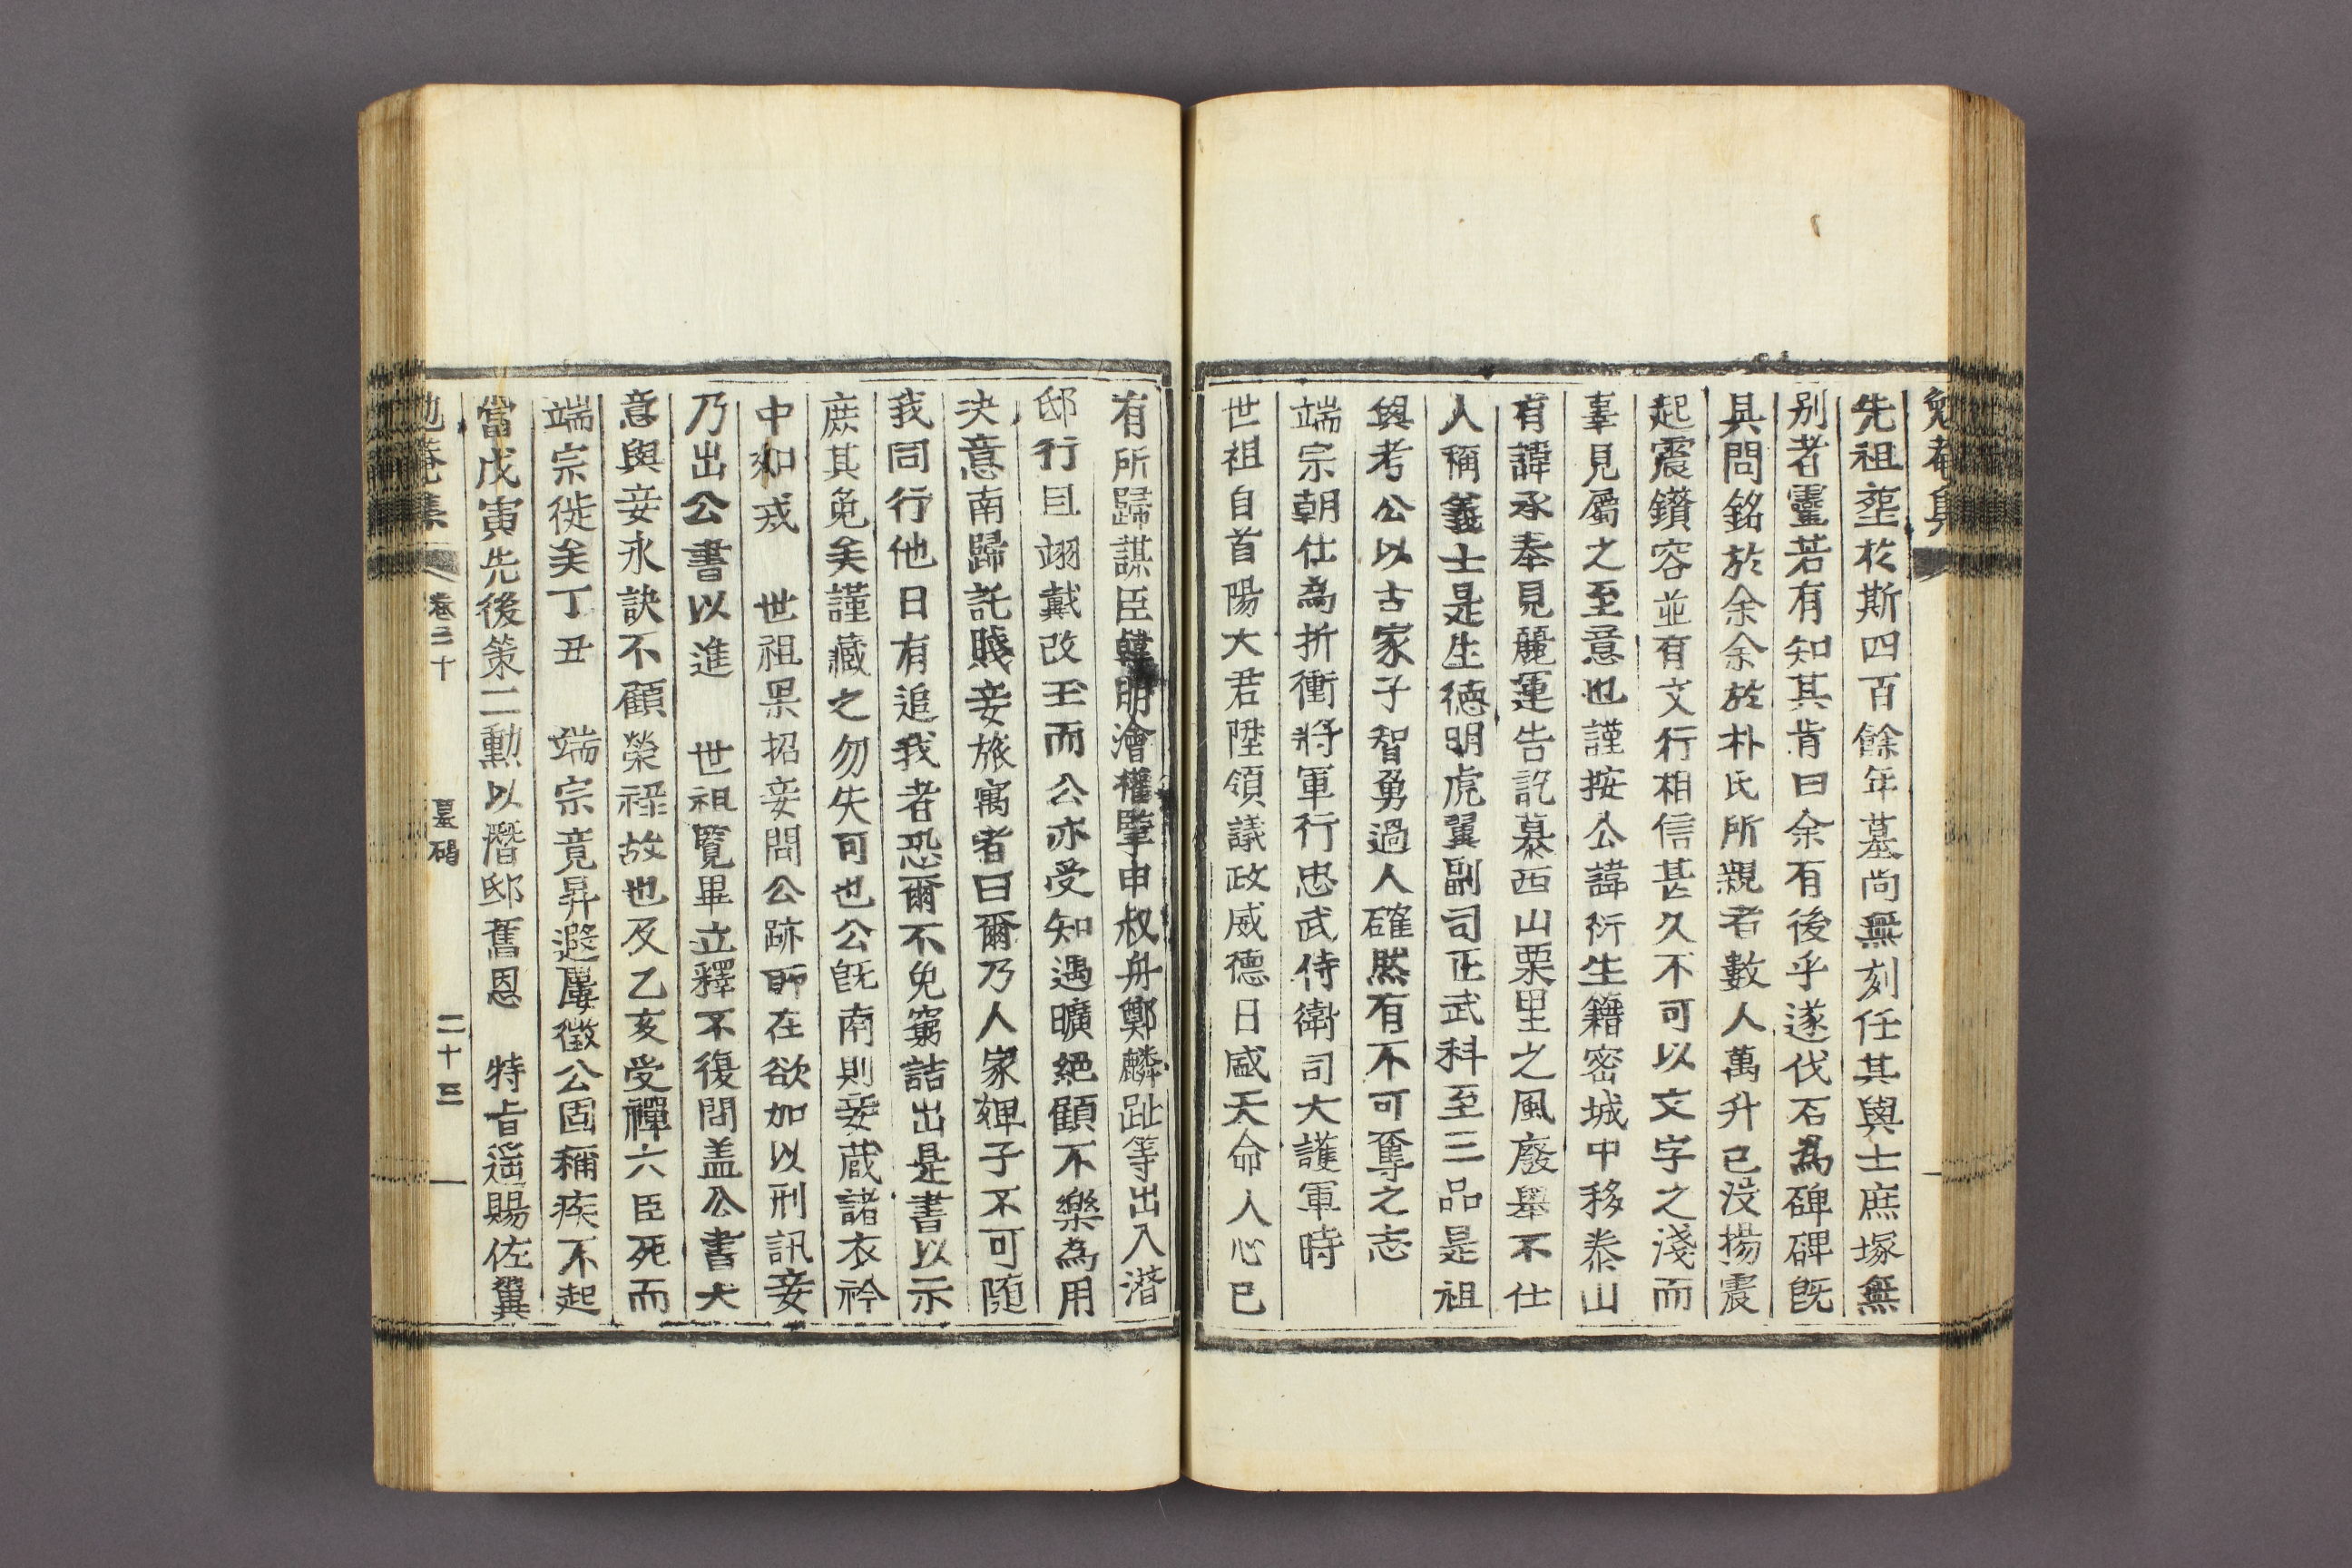 勉菴集
先祖塟於斯四百餘年墓尚無刻任其與士庶塚無
别者靈若有知其肯曰余有後乎遂伐石爲碑碑旣
具問銘於余余於朴氏所親者數人萬升已沒揚震
起震鑽容並有文行相信甚久不可以文字之淺而
辜見屬之至意也謹按公諱衍生籍密城中移泰山
有諱承奉見麗運告訖慕西山栗里之風廢舉不仕
人稱義士是生德明虎翼副司正武科至三品是祖
與考公以古家子智勇過人確然有不可奪之志
端宗朝仕為折衝將軍行忠武侍衛司大護軍時
世祖自首陽大君陞領議政威德日盛天命人心已
有所歸謀臣韓明澮權擥申叔舟鄭麟趾等出入潛
邸行且翊戴改玉而公亦受知遇曠絕顧不樂為用
决意南歸託賤妾旅寓者曰爾乃人家婢子不可随
我同行他日有追我者恐爾不免窮詰出是書以示
庶其免矣謹藏之勿失可也公旣南則妾蔵諸衣衿
中如戒　世祖果招妾問公跡所在欲加以刑訊妾
乃出公書以進　世祖覽畢立釋不復問盖公書大
意與妾永訣不顧榮祿故也及乙亥受禪六臣死而
端宗徙矣丁丑　端宗竟昇遐屢徵公固稱疾不起
當戊寅先後策二勳以潛邸舊恩　特旨遥賜佐翼
勉菴集　卷三十　墓碣　二十三